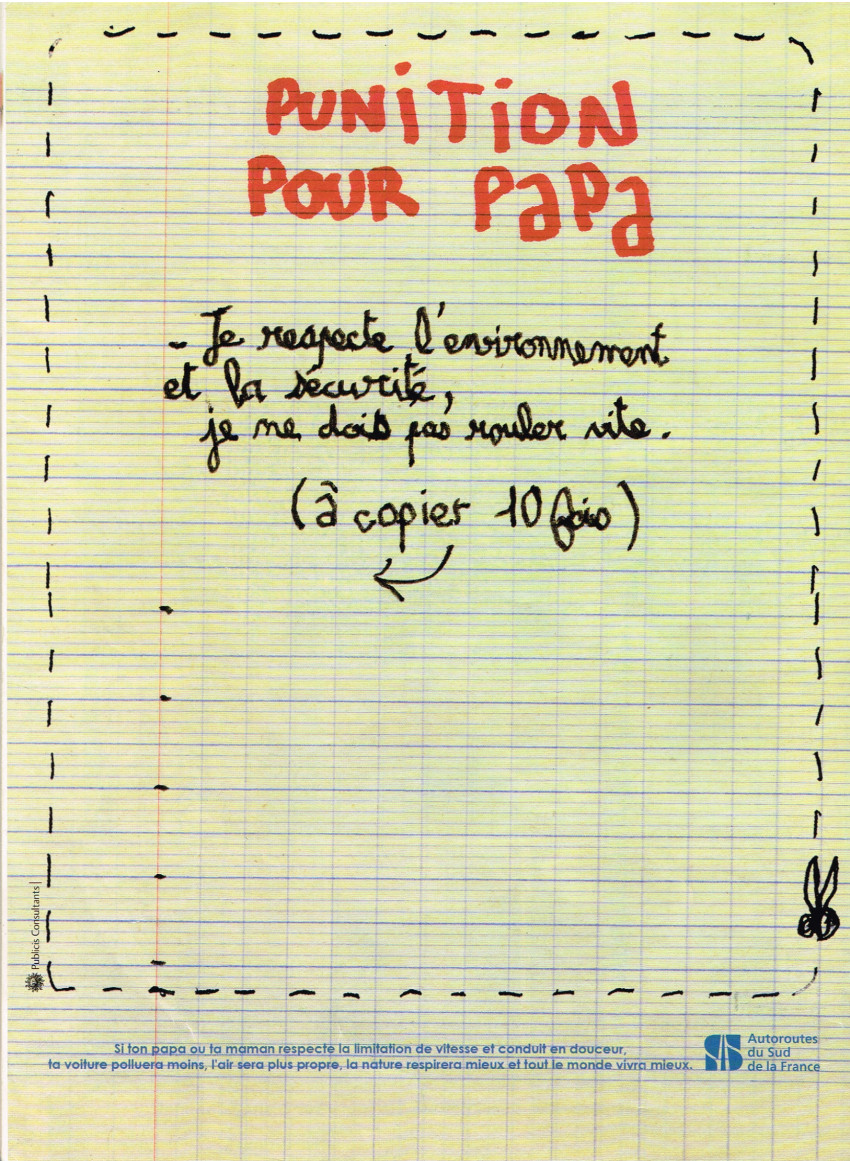 PUNITION
POUR PAPA
- Je respecte l'environnement
et la sécurité,
je ne dois pas rouler vite.
(à copier 10 fois)
Publicis Consultants |
Si ton papa ou ta maman respecte la limitation de vitesse et conduit en douceur,
ta voiture polluera moins, l'air sera plus propre, la nature respirera mieux et tout le monde vivra mieux.
Autoroutes
du Sud
de la France